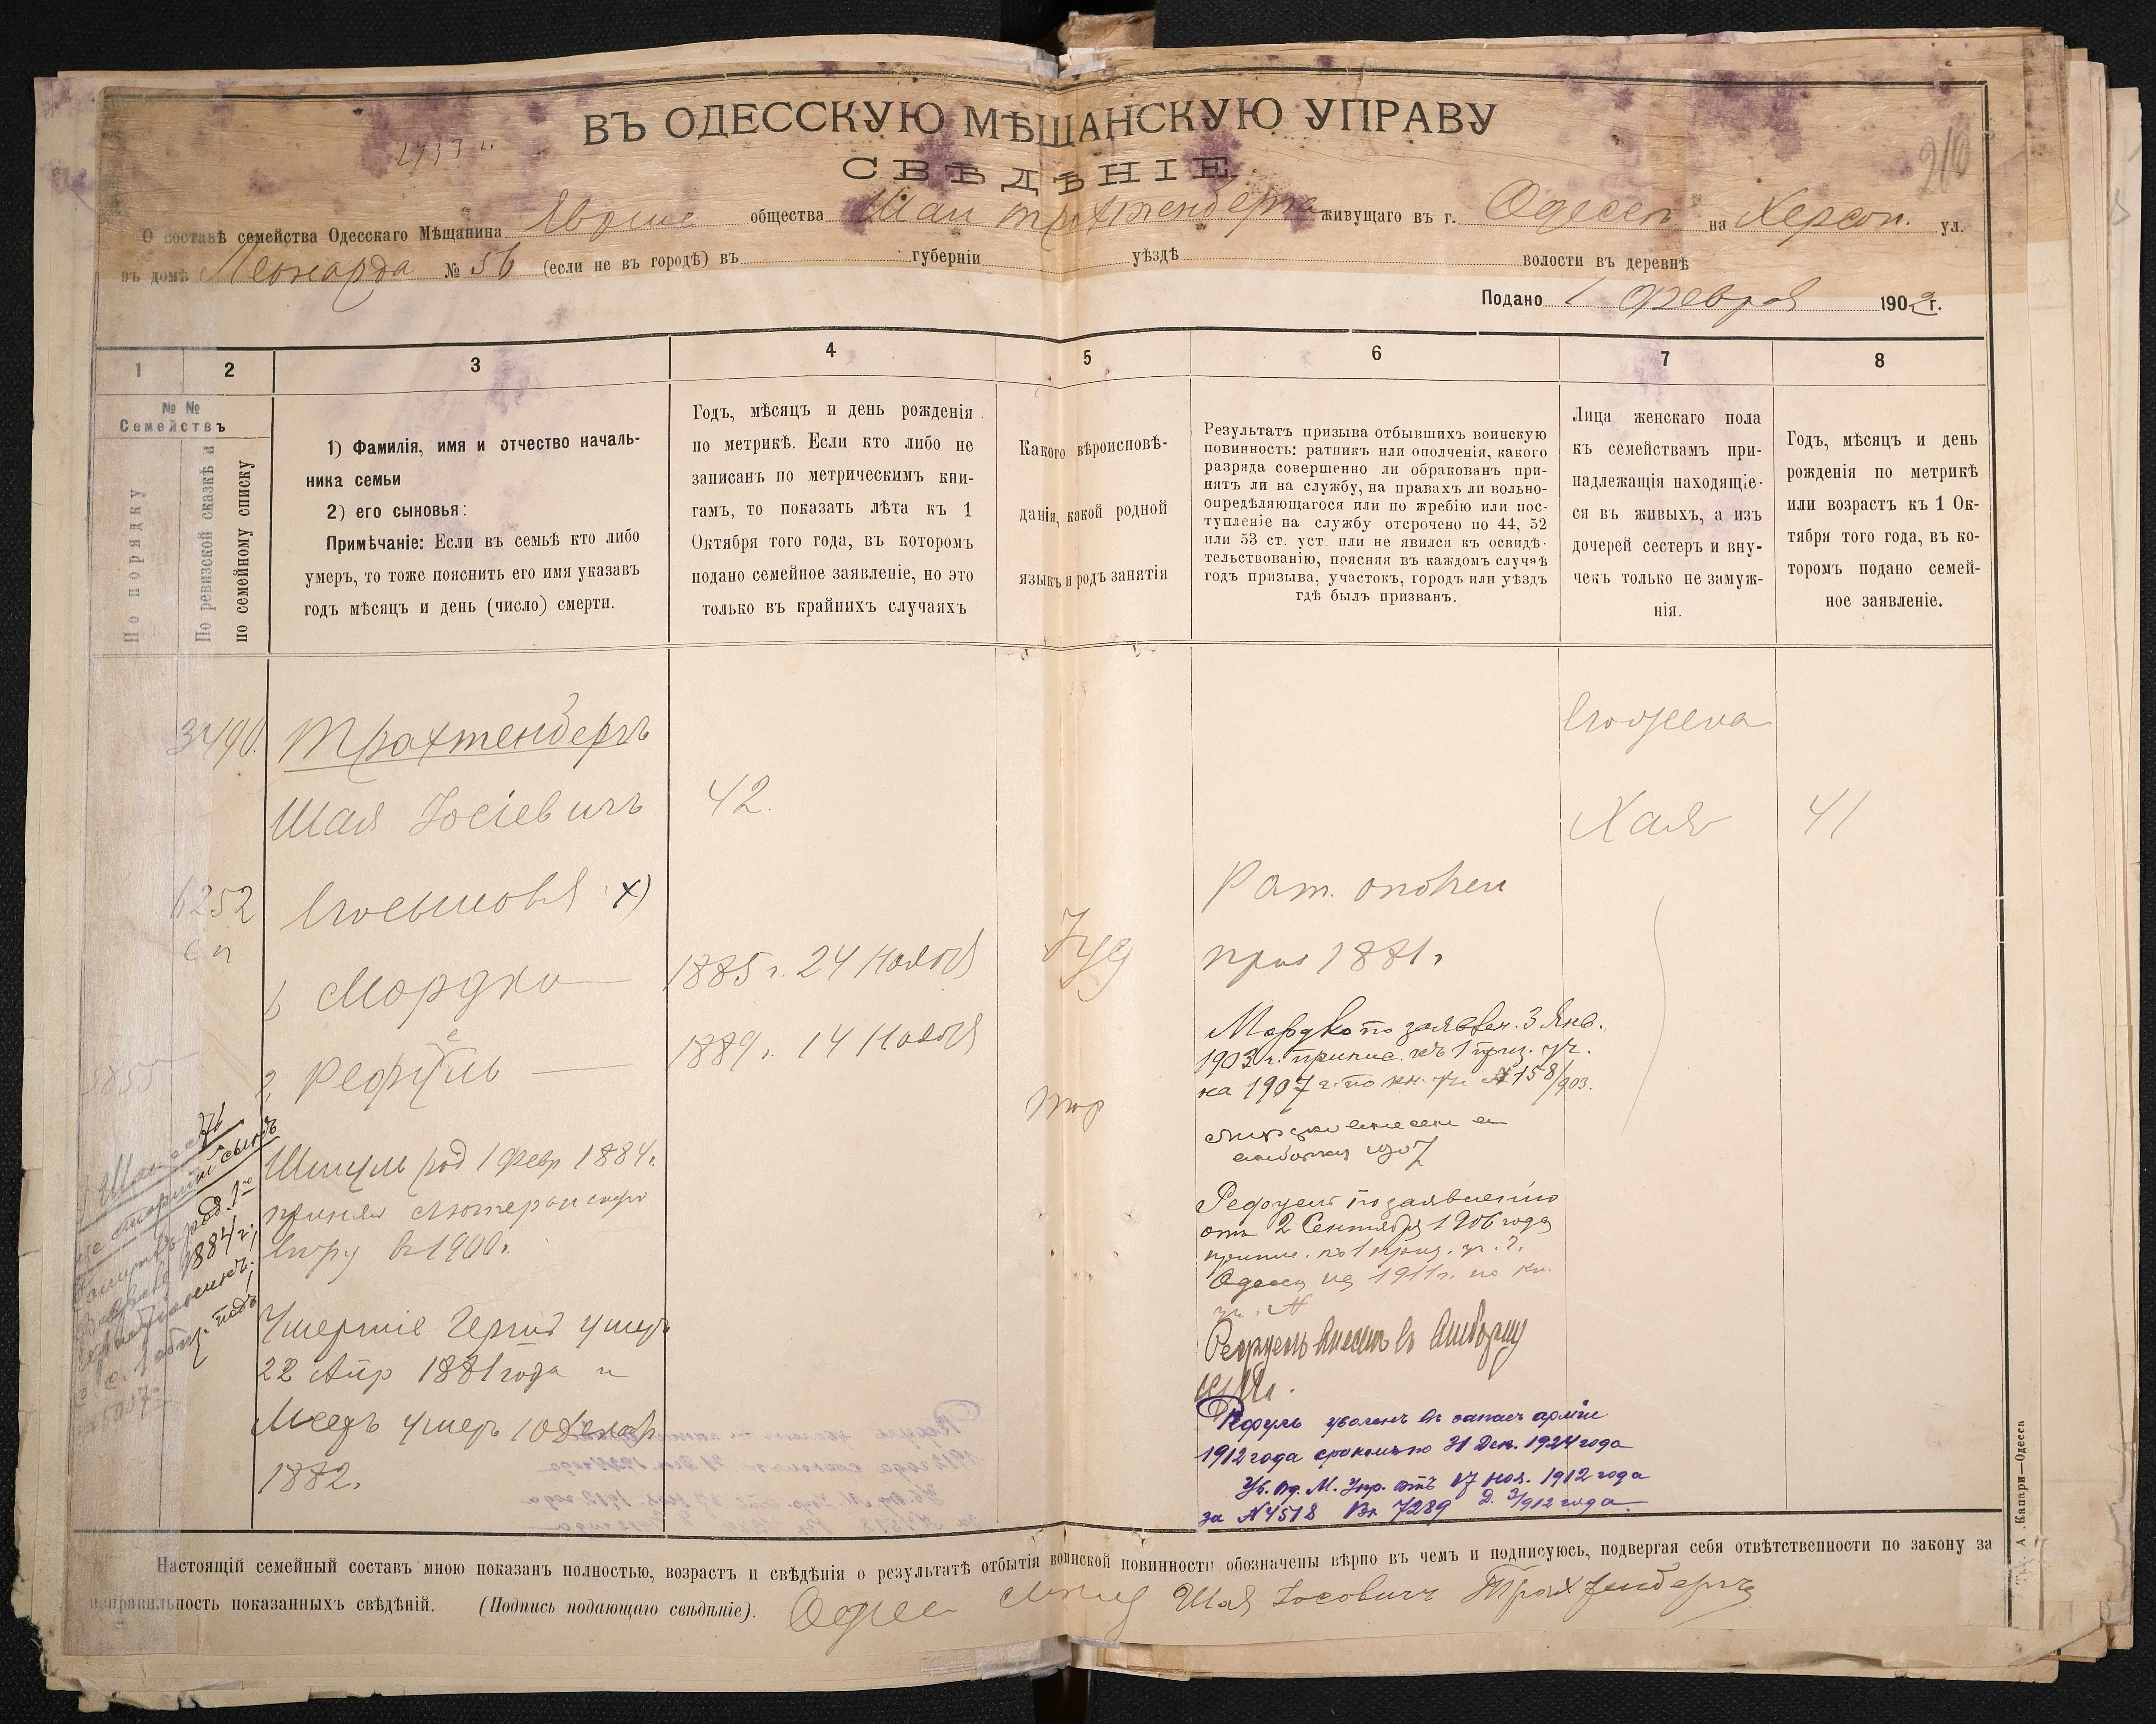 ВЪ ОДЕССКУЮ МѢЩАНСКУЮ УПРАВУ
СВѢДѢНІЕ
210
О составѣ семейства Одесскаго Мѣщанина общества Шаи Трахтенберга живущаго въ г. Одессѣ на Херсон. ул.
въ домѣ Леонарда № 56 (если не въ городѣ) въ губерніи уѣздѣ волости въ деревнѣ
Подано 1 Февраля 1902 г.
1 2 3 4 5 6 7 8
№ №
Семействъ
По порядку
По ревизской сказкѣ и
по семейному списку
1) Фамилія, имя и отчество началь-
ника семьи
2) его сыновья:
Примѣчаніе: Если въ семьѣ кто либо
умеръ, то тоже пояснить его имя указавъ
годъ мѣсяцъ и день (число) смерти.
Годъ, мѣсяцъ и день рожденія
по метрикѣ. Если кто либо не
записанъ по метрическимъ кни-
гамъ, то показать лѣта къ 1
Октября того года, въ которомъ
подано семейное заявленіе, но это
только въ крайнихъ случаяхъ
Какого вѣроисповѣ-
данія, какой родной
языкъ и родъ занятія
Результатъ призыва отбывшихъ воинскую
повинность: ратникъ или ополченія, какого
разряда совершенно ли обракованъ при-
нятъ ли на службу, на правахъ ли вольно-
опредѣляющагося или по жребію или пос-
тупленіе на службу отсрочено по 44, 52
или 53 ст. уст. или не явился къ освидѣ-
тельствованію, поясняя въ каждомъ случаѣ
годъ призыва, участокъ, городъ или уѣздъ
гдѣ былъ призванъ.
Лица женскаго пола
къ семействамъ при-
надлежащія находящіе-
ся въ живыхъ, а изъ
дочерей сестеръ и вну-
чекъ только не замуж-
нія.
Годъ, мѣсяцъ и день
рожденія по метрикѣ
или возрастъ къ 1 Ок-
тября того года, въ ко-
торомъ подано семей-
ное заявленіе.
3490.
Трахтенберъ
Шая Іосіевичъ
42.
Его жена
Хая
41
6252
сп
Его сыновья х)
1, Мордко
1885 г. 24 Ноября
2, Рефуль
1889 г. 14 Ноября
5855
Іуд
Рат. ополчен
приз 1881 г
Мордко по заявлен. 3 Янв.
1903 г. припис. къ 1 приз. уч.
на 1907 г. по кн. уч. № 158/903.
1907
Рефуель по заявленію
отъ 2 Сентября 1906 года
припис. къ 1 приз. уч. г.
Одессы на 1911 г. по кн.
уч. №
Рефуель внесенъ въ
Рефуль уволенъ въ запасъ арміи
1912 года срокомъ по 31 Дек. 1924 года
Ув. Од. М. Упр. отъ 17 ноя. 1912 года
за № 4518 Вх 7289 Д. 3/912 года
Шмуль род 1 Февр 1884 г.
принял лютеранскую
веру в 1900 г.
Умершіе Герш умеръ
22 Апр 1881 года и
умеръ 10 Декабр
1882.
старшій сынъ
род. 1-го
1884 г.;
Настоящій семейный составъ мною показанъ полностью, возрастъ и свѣдѣнія о результатѣ отбытія воинской повинности обозначены вѣрно въ чемъ и подписуюсь, подвергая себя отвѣтственности по закону за
неправильность показанныхъ свѣдѣній. (Подпись подающаго свѣдѣніе). Шая Іосовичъ Трахтенберъ
Тип. А. Капари—Одесса